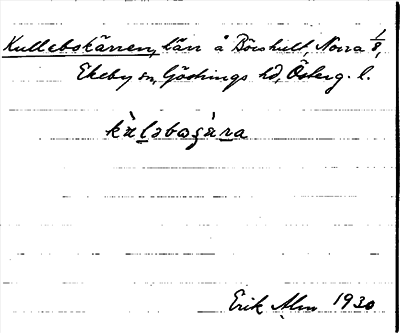 Kullebskärren, kärr å Börshult, Norra 1/8,
Ekeby sn, Göstrings hd, Österg. l.
kùl̠əbasɟ̀äṟa
Erik Alm 1930